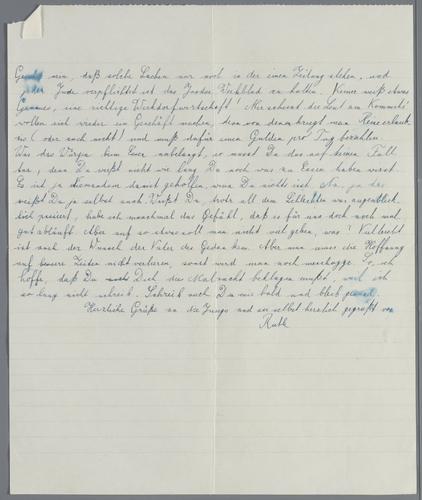 nun, daß solche Sachen nur noch in der einen Zeitung stehen, und
jeder Jude verpflichtet ist das Joodse Weekblad zu halten. Keiner weiß etwas
Genaues, eine richtige Wirtschaft! Mir scheint die Leut am Kommité
wollen viel wieder ein Geschäft machen, denn von denen kriegt man Reiseerlaub-
nis (oder auch nicht) und muß dafür einen Gulden pro Tag bezahlen.
Was das beim Euer anbelangt, so mußt Du das auf keinen Fall
tun, denn Du weißt nicht wie lang Du noch was zu Essen haben wirst.
Es ist ja niemandem damit geholfen, wenn Du nichts ißt. Na, ja das
weißt Du ja selbst auch. Weißt Du, trotz all dem Schlechten was augenblick-
lich passiert, habe ich manchmal das Gefühl, daß es für uns doch noch mal
gut abläuft. Aber auf so etwas soll man nicht viel geben, was? Vielleicht
ist auch der Wunsch der Vater des Gedanken. Aber man muß die Hoffnung
auf bessere Zeiten nicht verlieren, sonst wird man noch meschugge. So, ich
hoffe, daß Du Dich des Mal nicht beklagen mußt, weil ich
so lang nicht schreib. Schreib auch Du mir bald und bleib gesund,
Herzliche Grüße an die Jungs und sei selbst herzlich gegrüßt von
Ruth